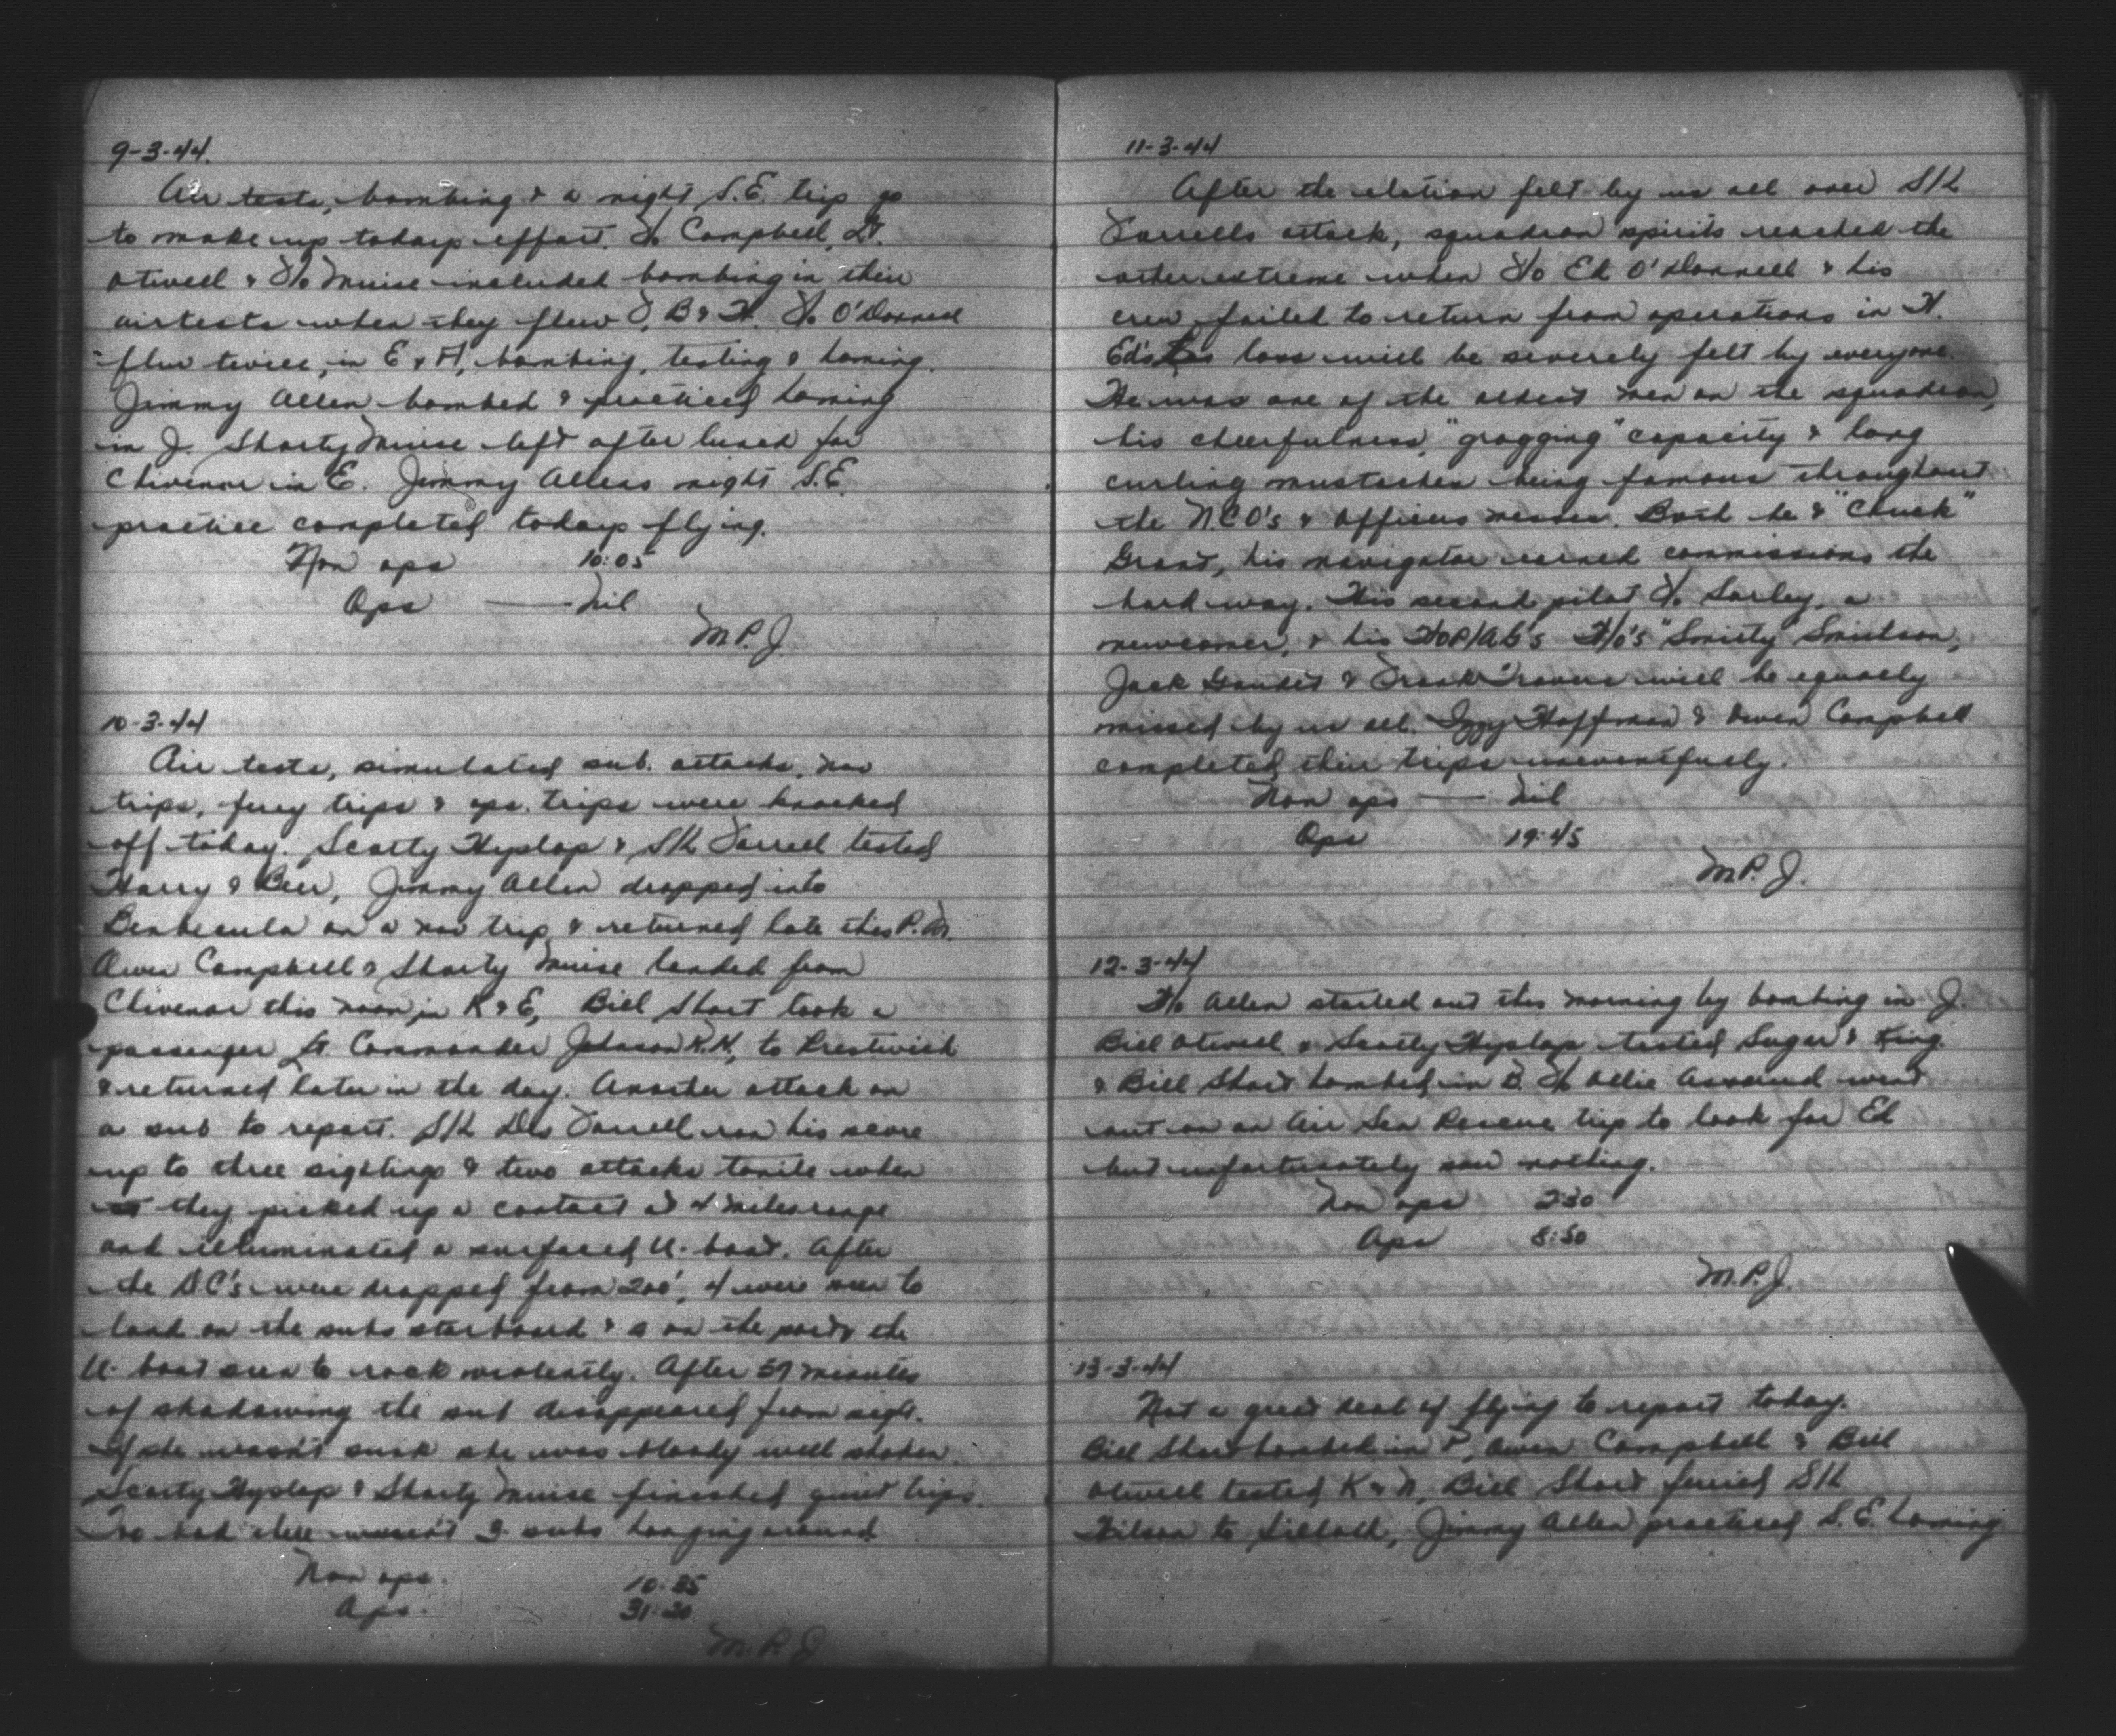 9-3-44.
Air tests, bombing & a night S.E. trip go
to make up todays effort. F/O Campbell, Lt.
Otwell & F/O Muise included bombing in their
airtests when they flew J, B & H. F/O O'Donnell
flew twice, in E & H, bombing, testing & homing.
Jimmy Allen bombed & practiced homing
in J. Shorty Muise left after lunch for
Chivenor in E. Jimmy Allens night S.E.
practice completed todays flying.
Non ops 10:05
Ops — Nil
M.P.J.
10-3-44
Air tests, simulated sub. attacks, nav
trips, ferry trips & ops. trips were knocked
off today. Scotty Hyslop & S/L Farrell tested
Harry & Beer, Jimmy Allen dropped into
Benbecula on a nav trip & returned late this P.M.
Owen Campbell & Shorty Muise landed from
Chivenor this noon in K & E, Bill Short took a
passenger Lt. Commander Johnson R.N., to Prestwick
& returned later in the day. Another attack on
a sub to report. S/L Des Farrell ran his score
up to three sightings & two attacks tonite when
they picked up a contact at 4 miles range
and illuminated a surfaced U-boat. After
the D.C's were dropped from 200', 4 were seen to
land on the subs starboard & on the port & the
U-boat seen to rock violently. After 57 minutes
of shadowing the sub disappeared from sight.
If she wasn't sunk she was bloody well shaken.
Scotty Hyslop & Shorty Muise finished quiet trips.
Too bad there weren't 3 subs hanging around
Non ops. 10:35
Ops. 31:20
M.P.J.
11-3-44
After the elation felt by us all over S/L
Farrells attack, squadron spirits reached the
other extreme when F/O Ed O'Donnell & his
crew failed to return from operations in H.
Ed's loss will be severely felt by everyone.
He was one of the oldest men on the squadron,
his cheerfulness, "grogging" capacity & long
curling mustaches being famous throughout
the N.C.O's & Officers messes. Both he & "Chuck"
Grant, his navigator earned commissions the
hard way. His second pilot F/O Sarley, a
newcomer, & his WOP/AG's W/O's "Smitty" Smithson,
Jack Goudet & Frank Travers will be equally
missed by us all. Iggy Hoffman & Owen Campbell
completed their trips uneventfully.
Non ops — Nil
Ops 19:45
M.P.J.
12-3-44
F/O Allen started out this morning by bombing in J.
Bill Otwell & Scotty Hyslop tested Sugar & King.
& Bill Short bombed in B. F/O Ollie Assaud went
out on an Air Sea Rescue trip to look for Ed
but unfortunately saw nothing.
Non ops 2:30
Ops 8:50
M.P.J.
13-3-44
Not a great deal of flying to report today.
Bill Short bombed in Owen Campbell & Bill
Otwell tested K & N, Bill Short ferried S/L
Wilson to Silloth, Jimmy Allen practiced S.E. homing